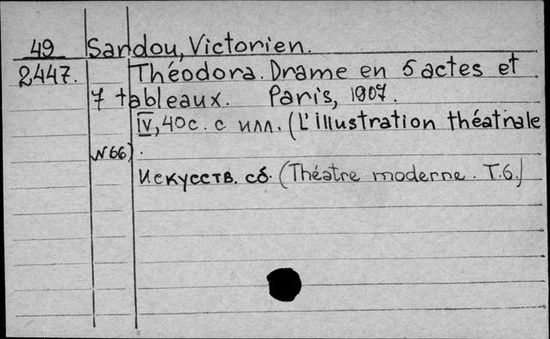 49 Sardou, Victorien.
2447. Théodora. Drame en 5 actes et
7 tableaux. Paris, 1907.
IV, 40с. с илл. (L'illustration théatrale
N 66).
Искусств. сб. (Théatre moderne. T.6.)